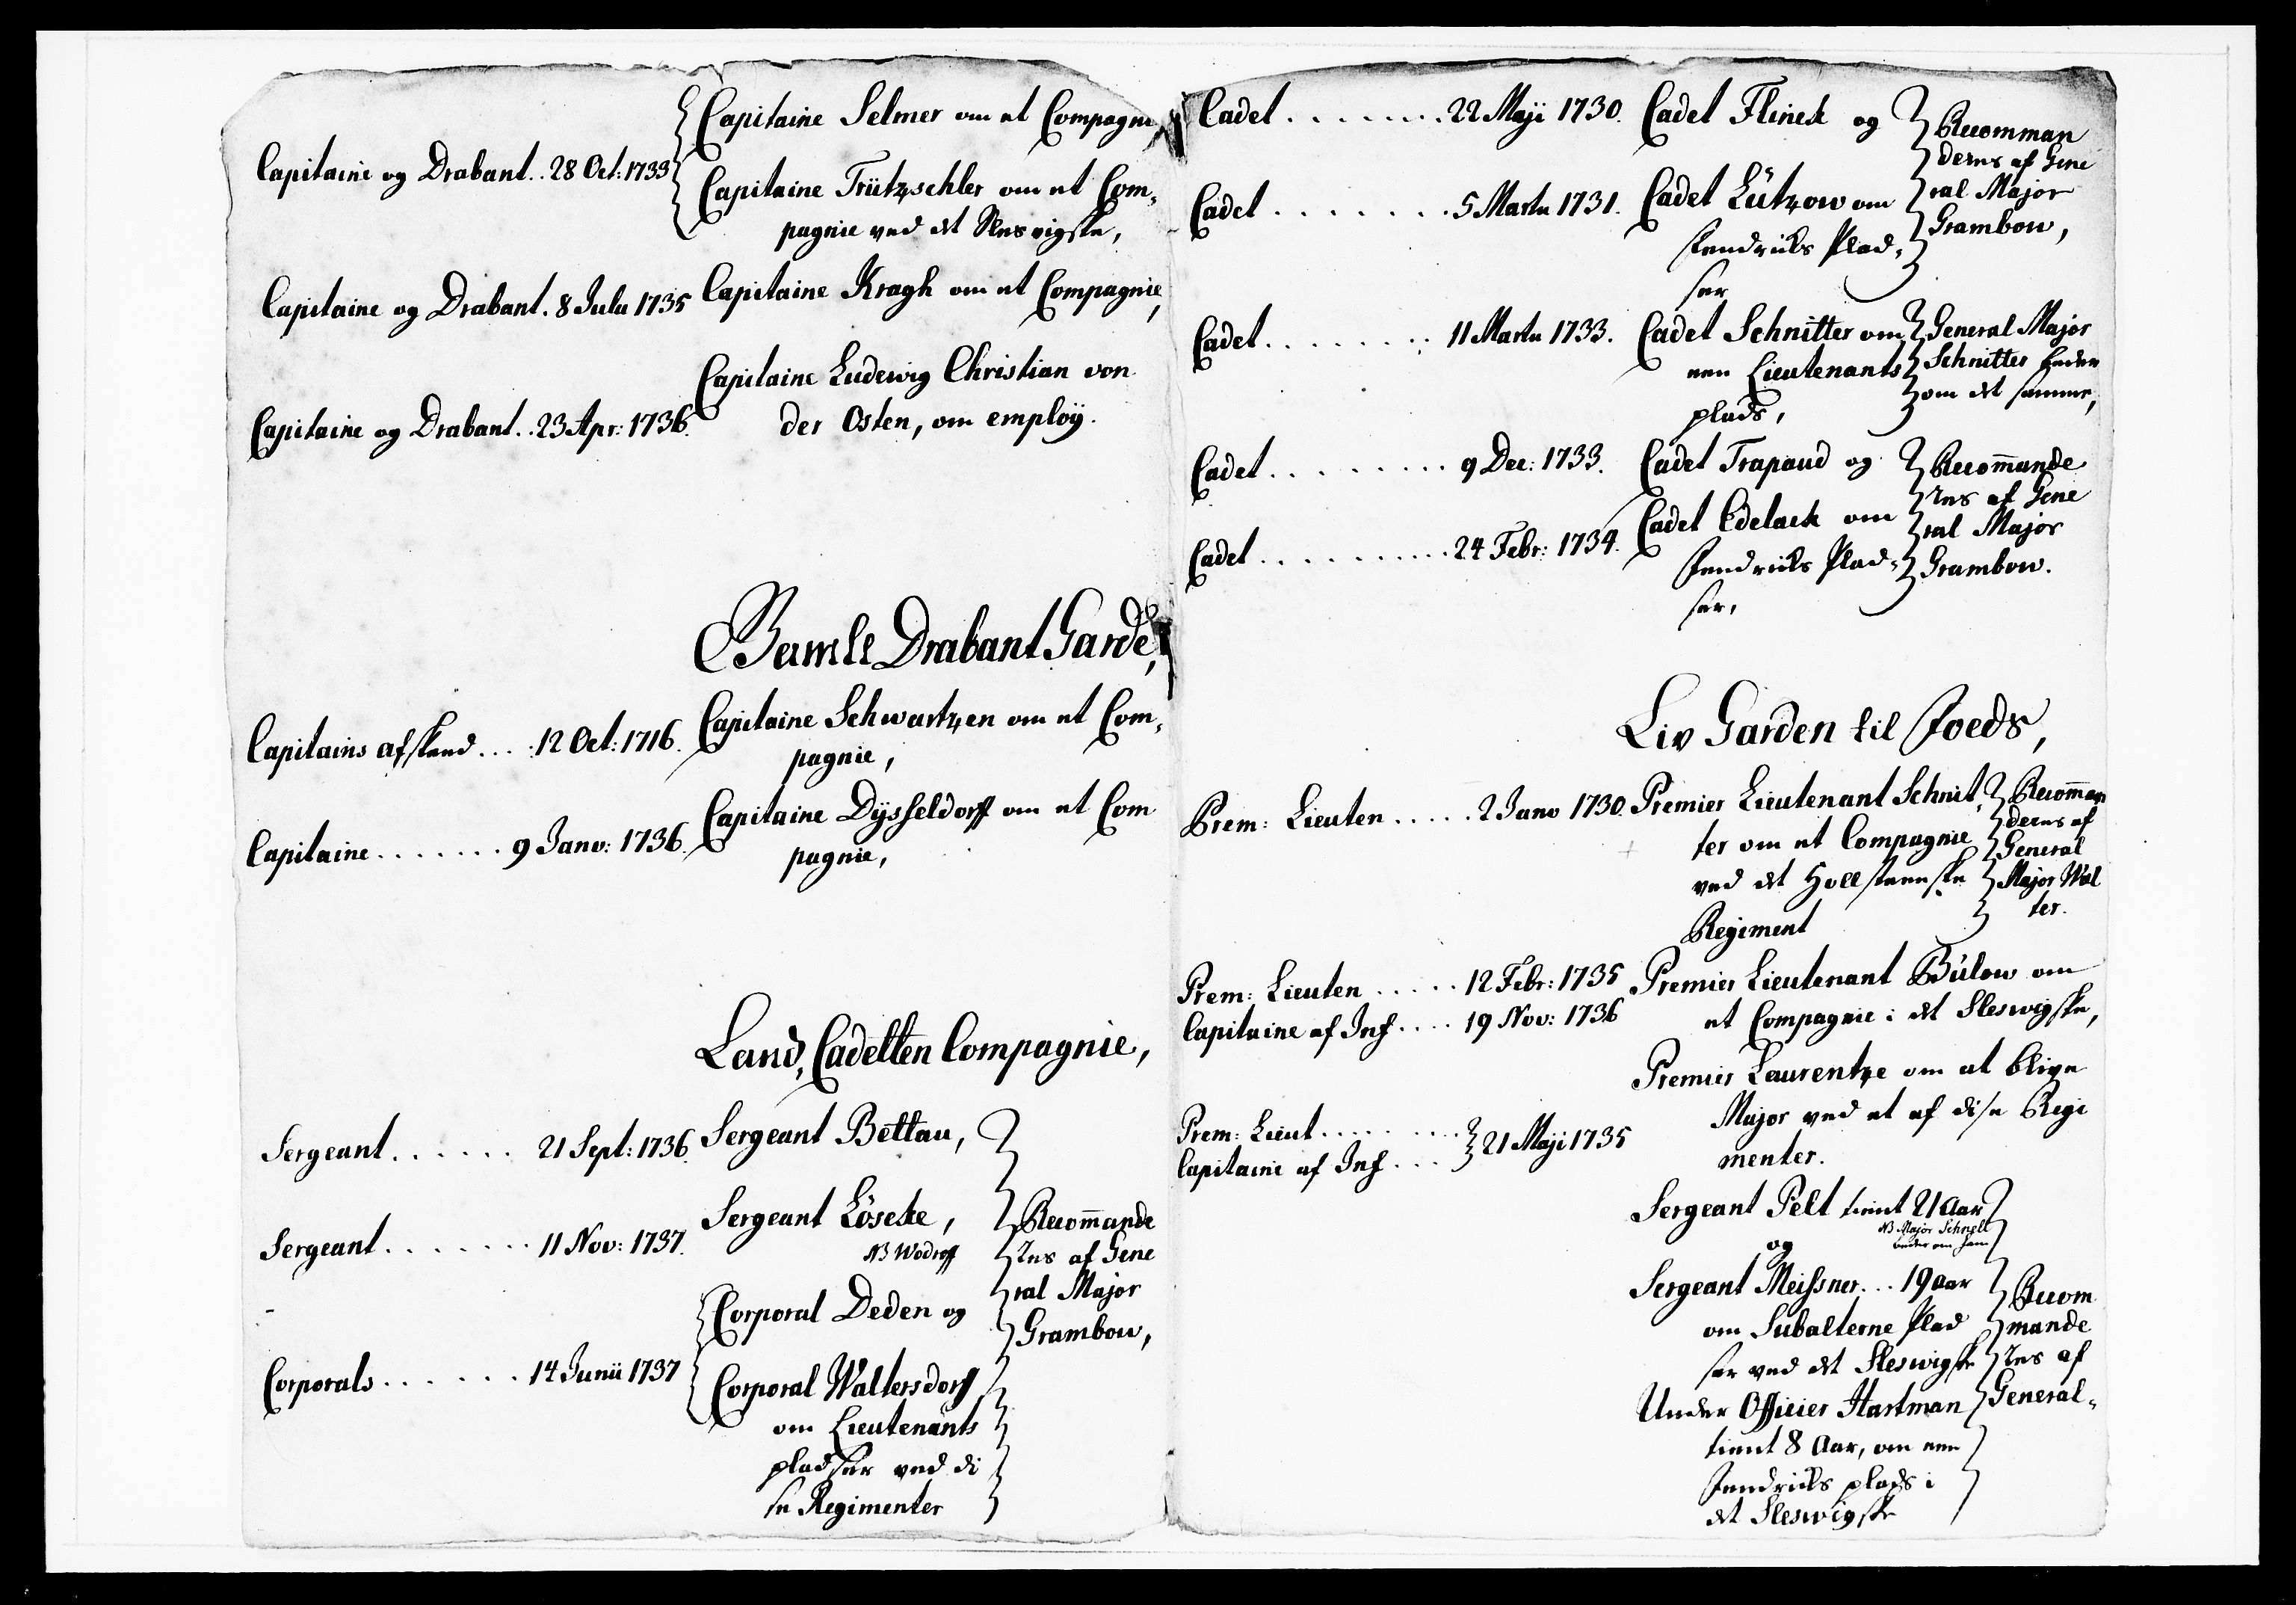 Capitaine og Drabant . . 28 Oct: 1733
Capitaine Selmer om et Compagni
Capitaine Trützschler om et Com-
pagnie ved det Slesvigske,
Capitaine og Drabant . 8 Julii 1735
Capitaine Kragh om et Compagnie,
Capitaine og Drabant . . 23 Apr: 1736.
Capitaine Ludewig Christian von
der Osten, om employ.
Gamle Drabant Garde,
Capitains afskeed . . . . 12 Oct: 1716.
Capitaine Schwartzen om et Com-
pagnie,
Capitaine . . . . . . . 9 Janv: 1736.
Capitaine Dÿsseldorff om et Com
pagnie,
Land, Cadetten Compagnie,
Sergeant . . . . . . 21 Sept: 1736.
Sergeant Bettau,
Sergeant . . . . . . . 11 Nov: 1737.
Sergeant Löseke,
NB Wodroff
Corporals . . . . . . 14 Junii 1737
Corporal Deden og
Corporal Waltersdorff
om Lieutenants
pladser ved di
se Regimenter
Recommande
res af Gene
ral Major
Grambow,
Cadet . . . . . . . . 22 Maji 1730.
Cadet Flinck og
Cadet . . . . . . . 5 Martii 1731.
Cadet Lützow om
Fendricks Plad-
ser
Recomman
deres af Gene
ral Major
Grambow,
Cadet . . . . . . . . 11 Martii 1733.
Cadet Schnitter om
een Lieutenants
plads,
General Major
Schnitter beder
om det samme,
Cadet . . . . . . . . 9 Dec: 1733.
Cadet Trapaud og
Cadet . . . . . . . . . 24 Febr: 1734.
Cadet Edelack om
Fendricks Plad-
ser,
Recommande
res af Gene
ral Major
Grambow.
Liv Garden til Foeds,
Prem: Lieuten . . . . . 2 Janv 1730.
Premier Lieutenant Schnit-
ter om et Compagnie
ved det Hollsteenske
Regiment
Recomman
deres af
General
Major Wal
ter.
Prem: Lieuten . . . . . 12 Febr: 1735
Capitaine af Inf . . . . 19 Nov: 1736
Premier Lieutenant Bülow om
et Compagnie i det Sleswigske,
Prem: Lieut . . . . . . . .
Capitaine af Inf . . . 21 Maji 1735
Premier Laurentze om at blive
Major ved et af dise Regi
menter.
Sergeant Pelt tient 21 Aar
NB Major Schnell
beder om ham
og
Sergeant Meissner . . . 19 Aar
om Subalterne Plad
ser ved det Sleswigske
Under Officier Hartman
tient 8 Aar, om een
Fendricks plads i
det Sleswigske
Recom
mande
res af
General-